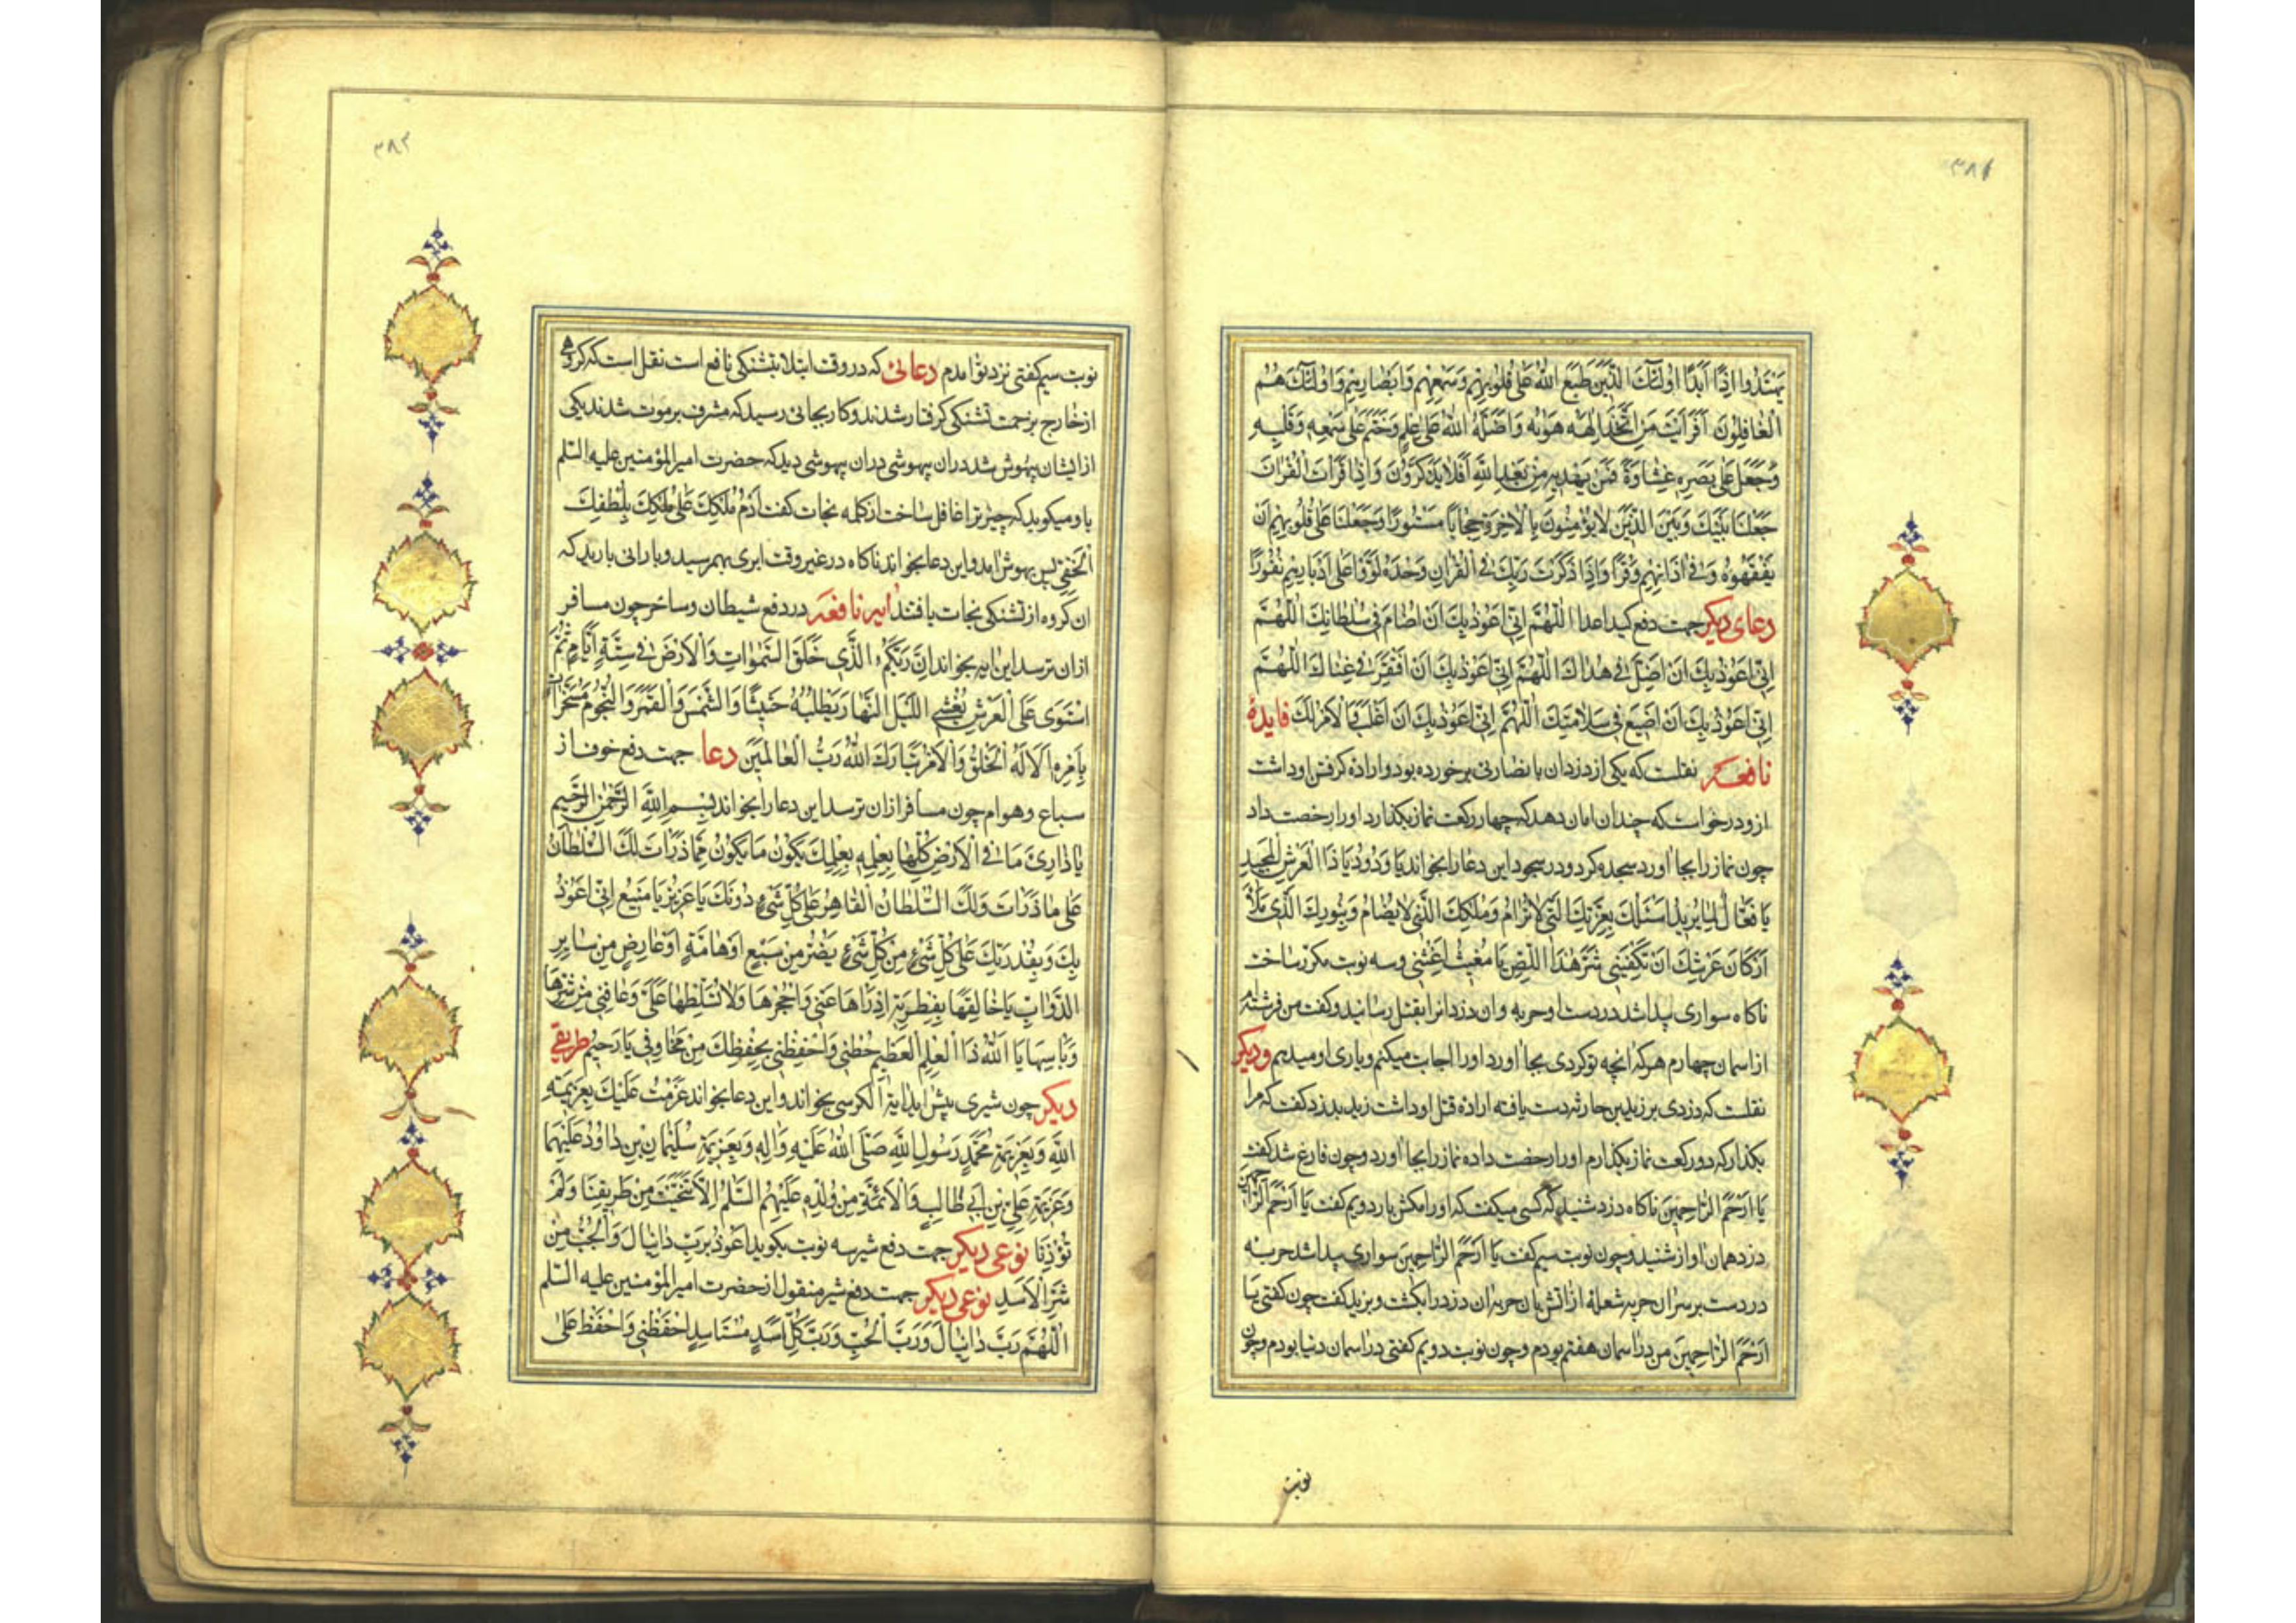 ٣٨١
يَهْتَدُوا اِذًا اَبَدًا اُولٰئِكَ الَّذِينَ طَبَعَ اللّٰهُ عَلٰى قُلُوبِهِمْ وَسَمْعِهِمْ وَاَبْصَارِهِمْ وَاُولٰئِكَ هُمُ
الْغَافِلُونَ اَفَرَاَيْتَ مَنِ اتَّخَذَ اِلٰهَهُ هَوٰيهُ وَاَضَلَّهُ اللّٰهُ عَلٰى عِلْمٍ وَخَتَمَ عَلٰى سَمْعِهِ وَقَلْبِهِ
وَجَعَلَ عَلٰى بَصَرِهِ غِشَاوَةً فَمَنْ يَهْدِيهِ مِنْ بَعْدِ اللّٰهِ اَفَلَا تَذَكَّرُونَ وَاِذَا قَرَاْتَ الْقُرْاٰنَ
جَعَلْنَا بَيْنَكَ وَبَيْنَ الَّذِينَ لَا يُؤْمِنُونَ بِالْاٰخِرَةِ حِجَابًا مَسْتُورًا وَجَعَلْنَا عَلٰى قُلُوبِهِمْ اَنْ
يَفْقَهُوهُ وَفِي اٰذَانِهِمْ وَقْرًا وَاِذَا ذَكَرْتَ رَبَّكَ فِي الْقُرْاٰنِ وَحْدَهُ وَلَّوْا عَلٰى اَدْبَارِهِمْ نُفُورًا
دعای دیکر جهت دفع کید اعدا اَللّٰهُمَّ اِنِّي اَعُوذُ بِكَ اَنْ اُضَامَ فِي سُلْطَانِكَ اَللّٰهُمَّ
اِنِّي اَعُوذُ بِكَ اَنْ اَضِلَّ فِي هُدَاكَ اَللّٰهُمَّ اِنِّي اَعُوذُ بِكَ اَنْ اَفْتَقِرَ فِي غِنَاكَ اَللّٰهُمَّ
اِنِّي اَعُوذُ بِكَ اَنْ اَضِيعَ فِي سَلَامَتِكَ اَللّٰهُمَّ اِنِّي اَعُوذُ بِكَ اَنْ اُغْلَبَ وَالْاَمْرُ لَكَ فایدۀ
نافعه نقلست که یکی از دزدان با نصارنی برخورده بود و اراده کرفتن او داشت
ازو درخواست که چندان امان دهد که چهار رکعت نماز بکذارد او را رخصت داد
چون نماز را بجا اورد سجده کرد و در سجود این دعا را بخواند يَا وَدُودُ يَا ذَا الْعَرْشِ الْمَجِيدِ
يَا فَعَّالُ لِمَا يُرِيدُ اَسْئَلُكَ بِعِزَّتِكَ الَّتِي لَا تُرَامُ وَمُلْكِكَ الَّذِي لَا يُضَامُ وَبِنُورِكَ الَّذِي مَلَأَ
اَرْكَانَ عَرْشِكَ اَنْ تَكْفِيَنِي شَرَّ هٰذَا اللِّصِّ يَا مُغِيثُ اَغِثْنِي و سه نوبت مکرر ساخت
ناکاه سواری پیدا شد در دست او حربه و ان دزد انرا بقتل رسانید و کفت من فرشته‌ام
از اسمان چهارم هرکه انچه تو کردی بجا اورد او را اجابت میکنم و یاری او میدهم و دیکر
نقلست که دزدی بر زید بن حارثه دست یافته اراده قتل او داشت زید بدزد کفت که مرا
بکذار که دو رکعت نماز بکذارم او را رخصت داده نماز را بجا اورد و چون فارغ شد کفت
يَا اَرْحَمَ الرَّاحِمِينَ ناکاه دزد شنید که کسی میکفت که او را مکش بار دویم کفت يَا اَرْحَمَ الرَّاحِمِينَ
دزد همان اواز شنید و چون نوبت سیم کفت يَا اَرْحَمَ الرَّاحِمِينَ سواری پیدا شد حربه
در دست بر سر ان حربه شعلۀ از اتش بان حربه ان دزد را بکشت و بزید کفت چون کفتی يَا
اَرْحَمَ الرَّاحِمِينَ من در اسمان هفتم بودم و چون نوبت دویم کفتی در اسمان دنیا بودم و چون
نوبت
٣٨٢
نوبت سیم کفتی نزد تو امدم دعائی که در وقت ابتلا بتشنکی نافع است نقل است که کروهی
از خارج بزحمت تشنکی کرفتار شدند و کار بجائی رسید که مشرف بر موت شدند یکی
از ایشان بیهوش شد دران بیهوشی دران بیهوشی دید که حضرت امیر المؤمنین علیه السلم
باو میکوید که چیز ترا غافل ساخت از کلمه نجات کفت اَدِمْ مُلْكَكَ عَلٰى مُلْكِكَ بِلُطْفِكَ
الْخَفِيِّ پس بهوش امد و این دعا بخواند ناکاه در غیر وقت ابری بهم رسید و بارانی بارید که
ان کروه از تشنکی نجات یافتند ایر نافعه در دفع شیطان و ساحر چون مسافر
ازان ترسد این ایه بخواند اِنَّ رَبَّكُمُ الَّذِي خَلَقَ السَّمٰوَاتِ وَالْاَرْضَ فِي سِتَّةِ اَيَّامٍ ثُمَّ
اسْتَوٰى عَلَى الْعَرْشِ يُغْشِي اللَّيْلَ النَّهَارَ يَطْلُبُهُ حَثِيثًا وَالشَّمْسَ وَالْقَمَرَ وَالنُّجُومَ مُسَخَّرَاتٍ
بِاَمْرِهِ اَلَا لَهُ الْخَلْقُ وَالْاَمْرُ تَبَارَكَ اللّٰهُ رَبُّ الْعَالَمِينَ دعا جهت دفع خوف از
سباع و هوام چون مسافر ازان ترسد این دعا را بخواند بِسْمِ اللّٰهِ الرَّحْمٰنِ الرَّحِيمِ
يَا ذَارِئَ مَا فِي الْاَرْضِ كُلِّهَا بِعِلْمِهِ بِعِلْمِكَ يَكُونُ مَا يَكُونُ مِمَّا ذَرَاْتَ لَكَ السُّلْطَانُ
عَلٰى مَا ذَرَاْتَ وَلَكَ السُّلْطَانُ الْقَاهِرُ عَلٰى كُلِّ شَيْءٍ دُونَكَ يَا عَزِيزُ يَا مَنِيعُ اِنِّي اَعُوذُ
بِكَ وَبِقُدْرَتِكَ عَلٰى كُلِّ شَيْءٍ مِنْ كُلِّ شَيْءٍ يَضُرُّ مِنْ سَبُعٍ اَوْ هَامَّةٍ اَوْ عَارِضٍ مِنْ سَايِرِ
الدَّوَابِّ يَا خَالِقَهَا بِفِطْرَتِهِ اِدْرَاْهَا عَنِّي وَاحْجُزْهَا وَلَا تُسَلِّطْهَا عَلَيَّ وَعَافِنِي مِنْ شَرِّهَا
وَبَاْسِهَا يَا اَللّٰهُ ذَا الْعِلْمِ الْعَظِيمِ حُطْنِي وَاحْفَظْنِي بِحِفْظِكَ مِنْ مَخَاوِفِي يَا رَحِيمُ طریقی
دیکر چون شیری پیش اید ایة الکرسی بخواند و این دعا بخواند عَزَمْتُ عَلَيْكَ بِعَزِيمَةِ
اللّٰهِ وَبِعَزِيمَةِ مُحَمَّدٍ رَسُولِ اللّٰهِ صَلَّى اللّٰهُ عَلَيْهِ وَاٰلِهِ وَبِعَزِيمَةِ سُلَيْمَانَ بْنِ دَاوُدَ عَلَيْهِمَا
وَعَزِيمَةِ عَلِيِّ بْنِ اَبِي طَالِبٍ وَالْاَئِمَّةِ مِنْ وُلْدِهِ عَلَيْهِمُ السَّلَمُ اِلَّا تَنَحَّيْتَ مِنْ طَرِيقِنَا وَلَمْ
تُؤْذِنَا نوعی دیکر جهت دفع شیر سه نوبت بکوید اَعُوذُ بِرَبِّ دَانِيَالَ وَالْجُبِّ مِنْ
شَرِّ الْاَسَدِ نوعی دیکر جهت دفع شیر منقول از حضرت امیر المؤمنین علیه السلم
اَللّٰهُمَّ رَبَّ دَانِيَالَ وَرَبَّ الْجُبِّ وَرَبَّ كُلِّ اَسَدٍ مُسْتَاْسِدٍ احْفَظْنِي وَاحْفَظْ عَلَيَّ